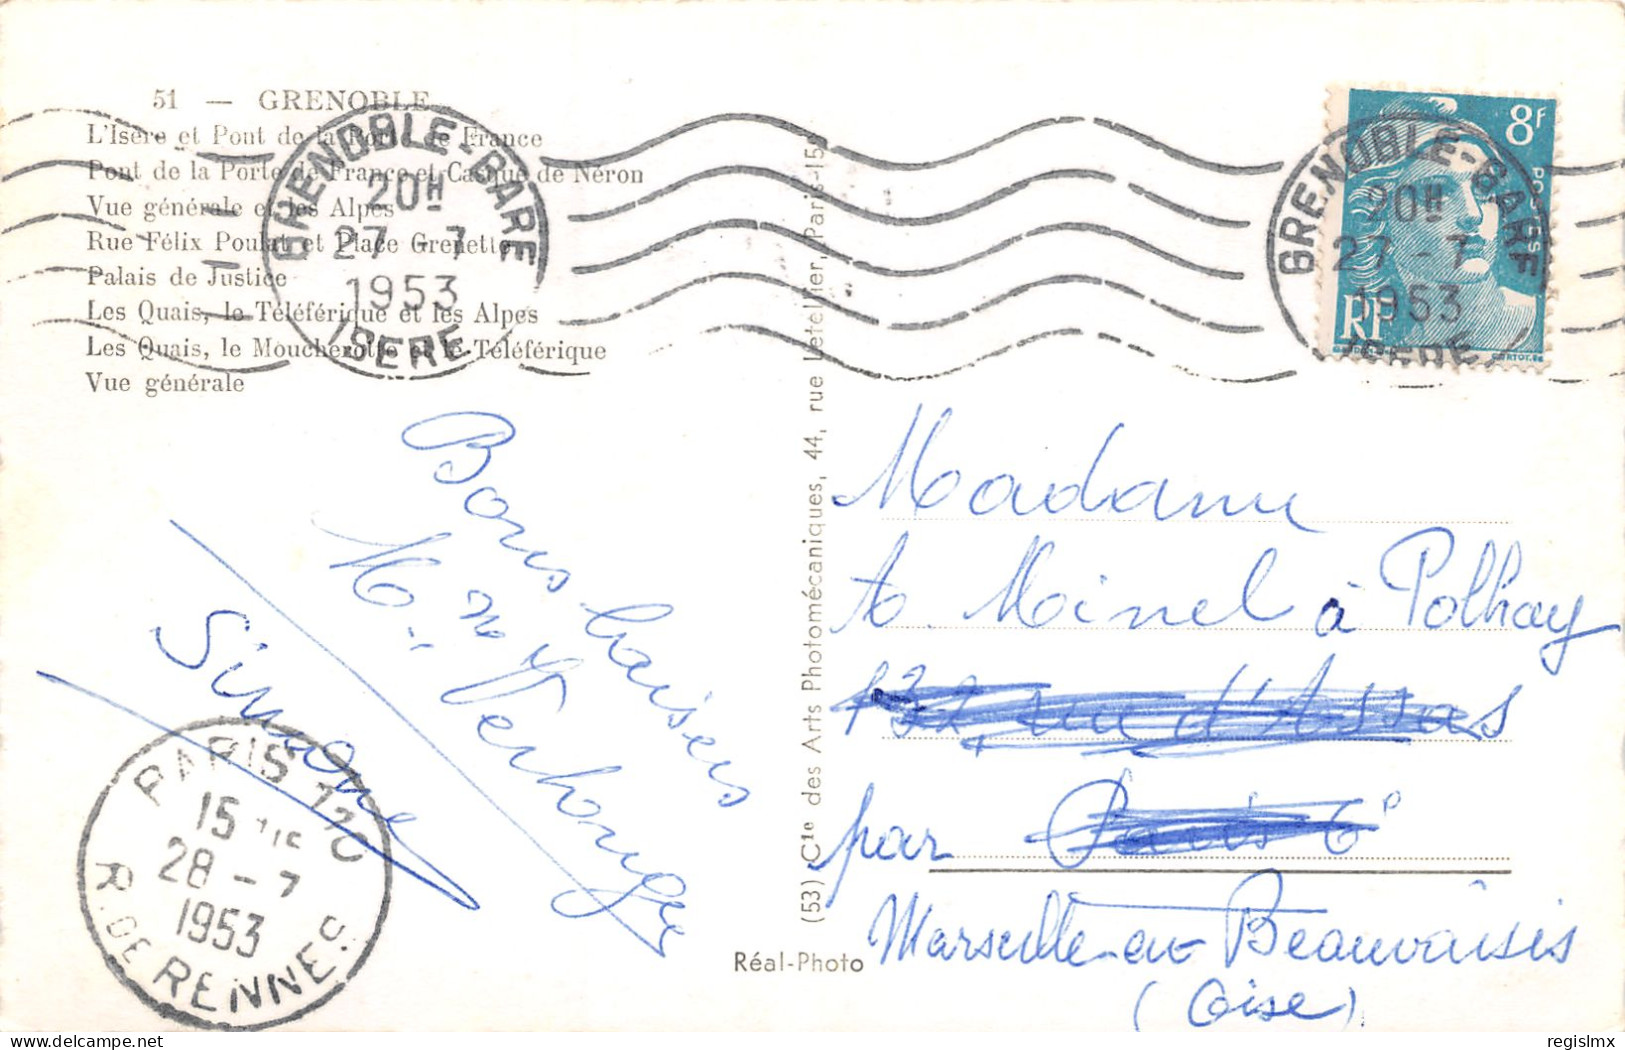 51 — GRENOBLE
L'Isère et Pont de la Porte de France
Pont de la Porte de France et Casque de Néron
Vue générale et les Alpes
Rue Félix Poulat et Place Grenette
Palais de Justice
Les Quais, le Téléférique et les Alpes
Les Quais, le Moucherotte et le Téléférique
Vue générale
GRENOBLE-GARE
20H
27 -7
1953
ISERE
8F
POSTES
RF
GRENOBLE-GARE
20H
27 -7
1953
ISERE
Bons baisers
M. 
Simone
PARIS 110
15H
28 -7
1953
R. DE RENNES
(53) Cie des Arts Photomécaniques, 44, rue Letellier, Paris-15e
Réal-Photo
Madame
A. Minel à Polhay
132, rue d'Assas
par Paris 6e
Marseille-en-Beauvaisis
(Oise)
regislmx